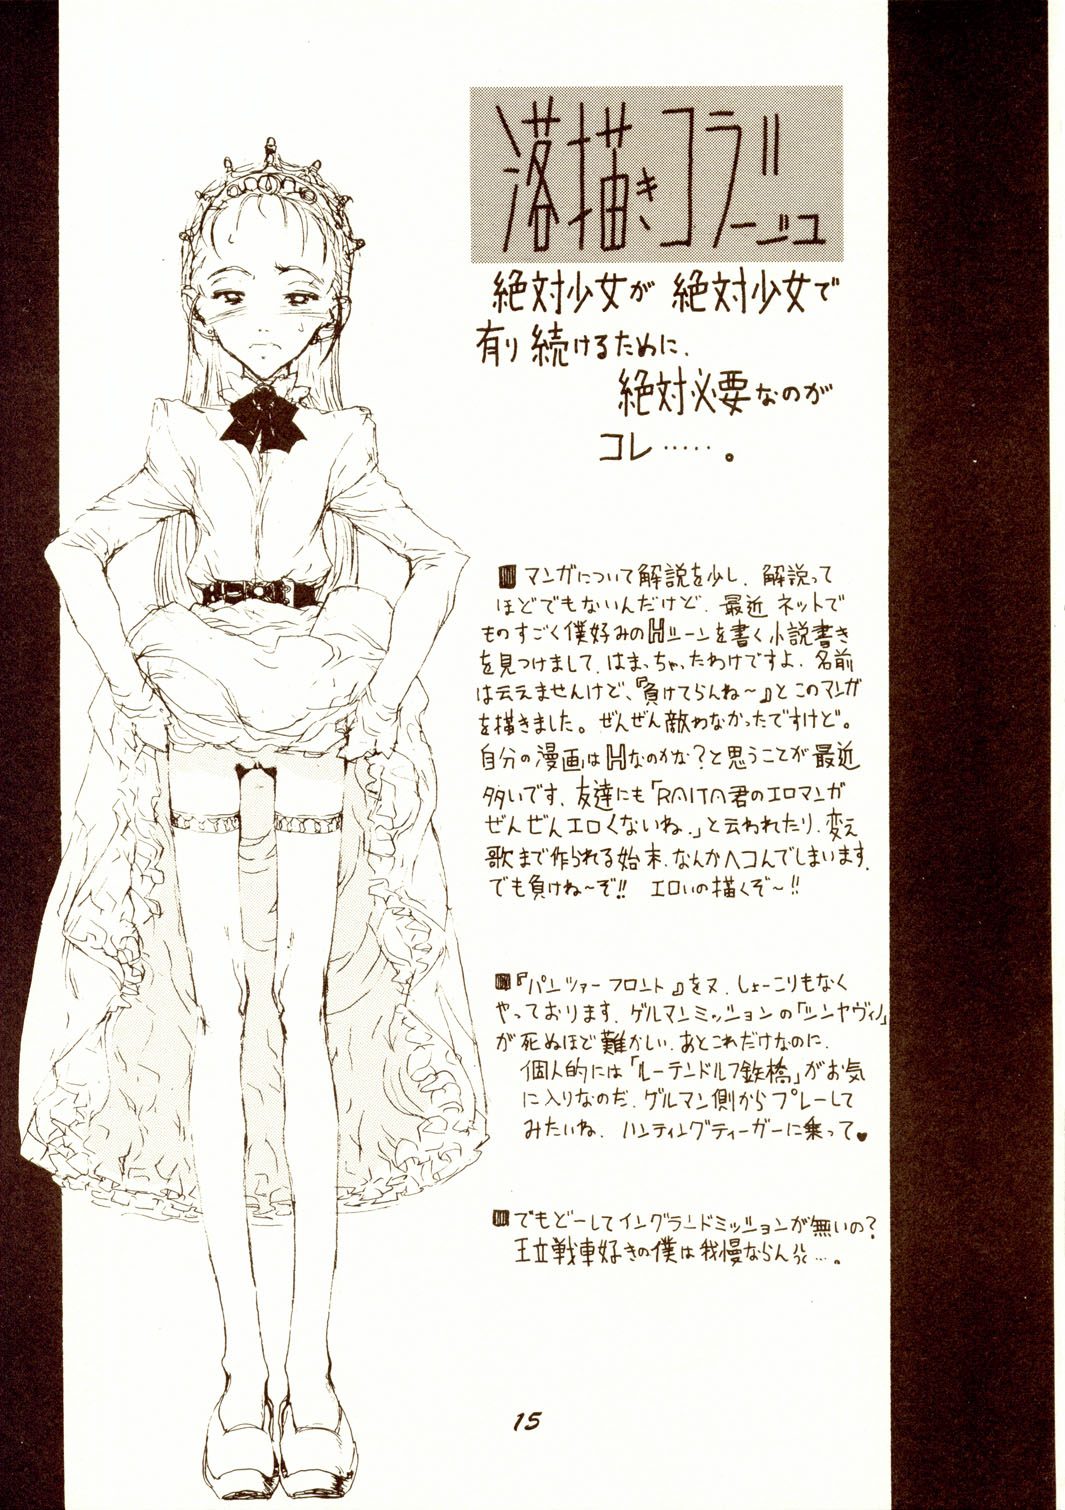 落描きコラージュ
絶対少女が 絶対少女で
有り続けるために、
絶対必要なのが
コレ……。
マンガについて解説を少し、解説って
ほどでもないんだけど、最近 ネットで
ものすごく僕好みのHシーンを書く小説書き
を見つけまして、はまっちゃったわけですよ、名前
は云えませんけど、『負けてらんね〜』とこのマンガ
を描きました。ぜんぜん敵わなかったですけど。
自分の漫画はHなのかな?と思うことが最近
多いです、友達にも「RAITA君のエロマンガ
ぜんぜんエロくないね.」と云われたり、変え
歌まで作られる始末、なんかヘコんでしまいます、
でも負けね〜ぞ!! エロいの描くぞ〜!!
『パンツァーフロント』をヌ、しょーこりもなく
やっております、ゲルマンミッションの「シンヤヴィノ」
が死ぬほど難かしい、あとこれだけなのに、
個人的には「ルーテンドルフ鉄橋」がお気
に入りなのだ、ゲルマン側からプレーして
みたいね、ハンティングティーガーに乗って♥
でもどーしてイングランドミッションが無いの?
王立戦車好きの僕は我慢ならん…。
15